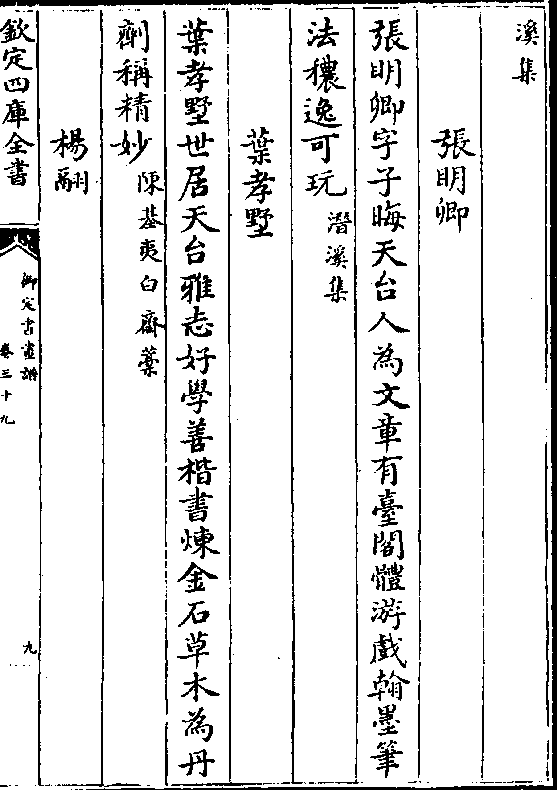 溪集
張明卿
張明卿字子晦天台人為文章有臺閣體游戲翰墨筆
法穠逸可玩潛溪集
葉孝墅
葉孝墅世居天台雅志好學善楷書煉金石草木為丹
劑稱精妙陳基夷白齋藁
楊翮
欽定四庫全書
御定書畫譜
卷三十九
九